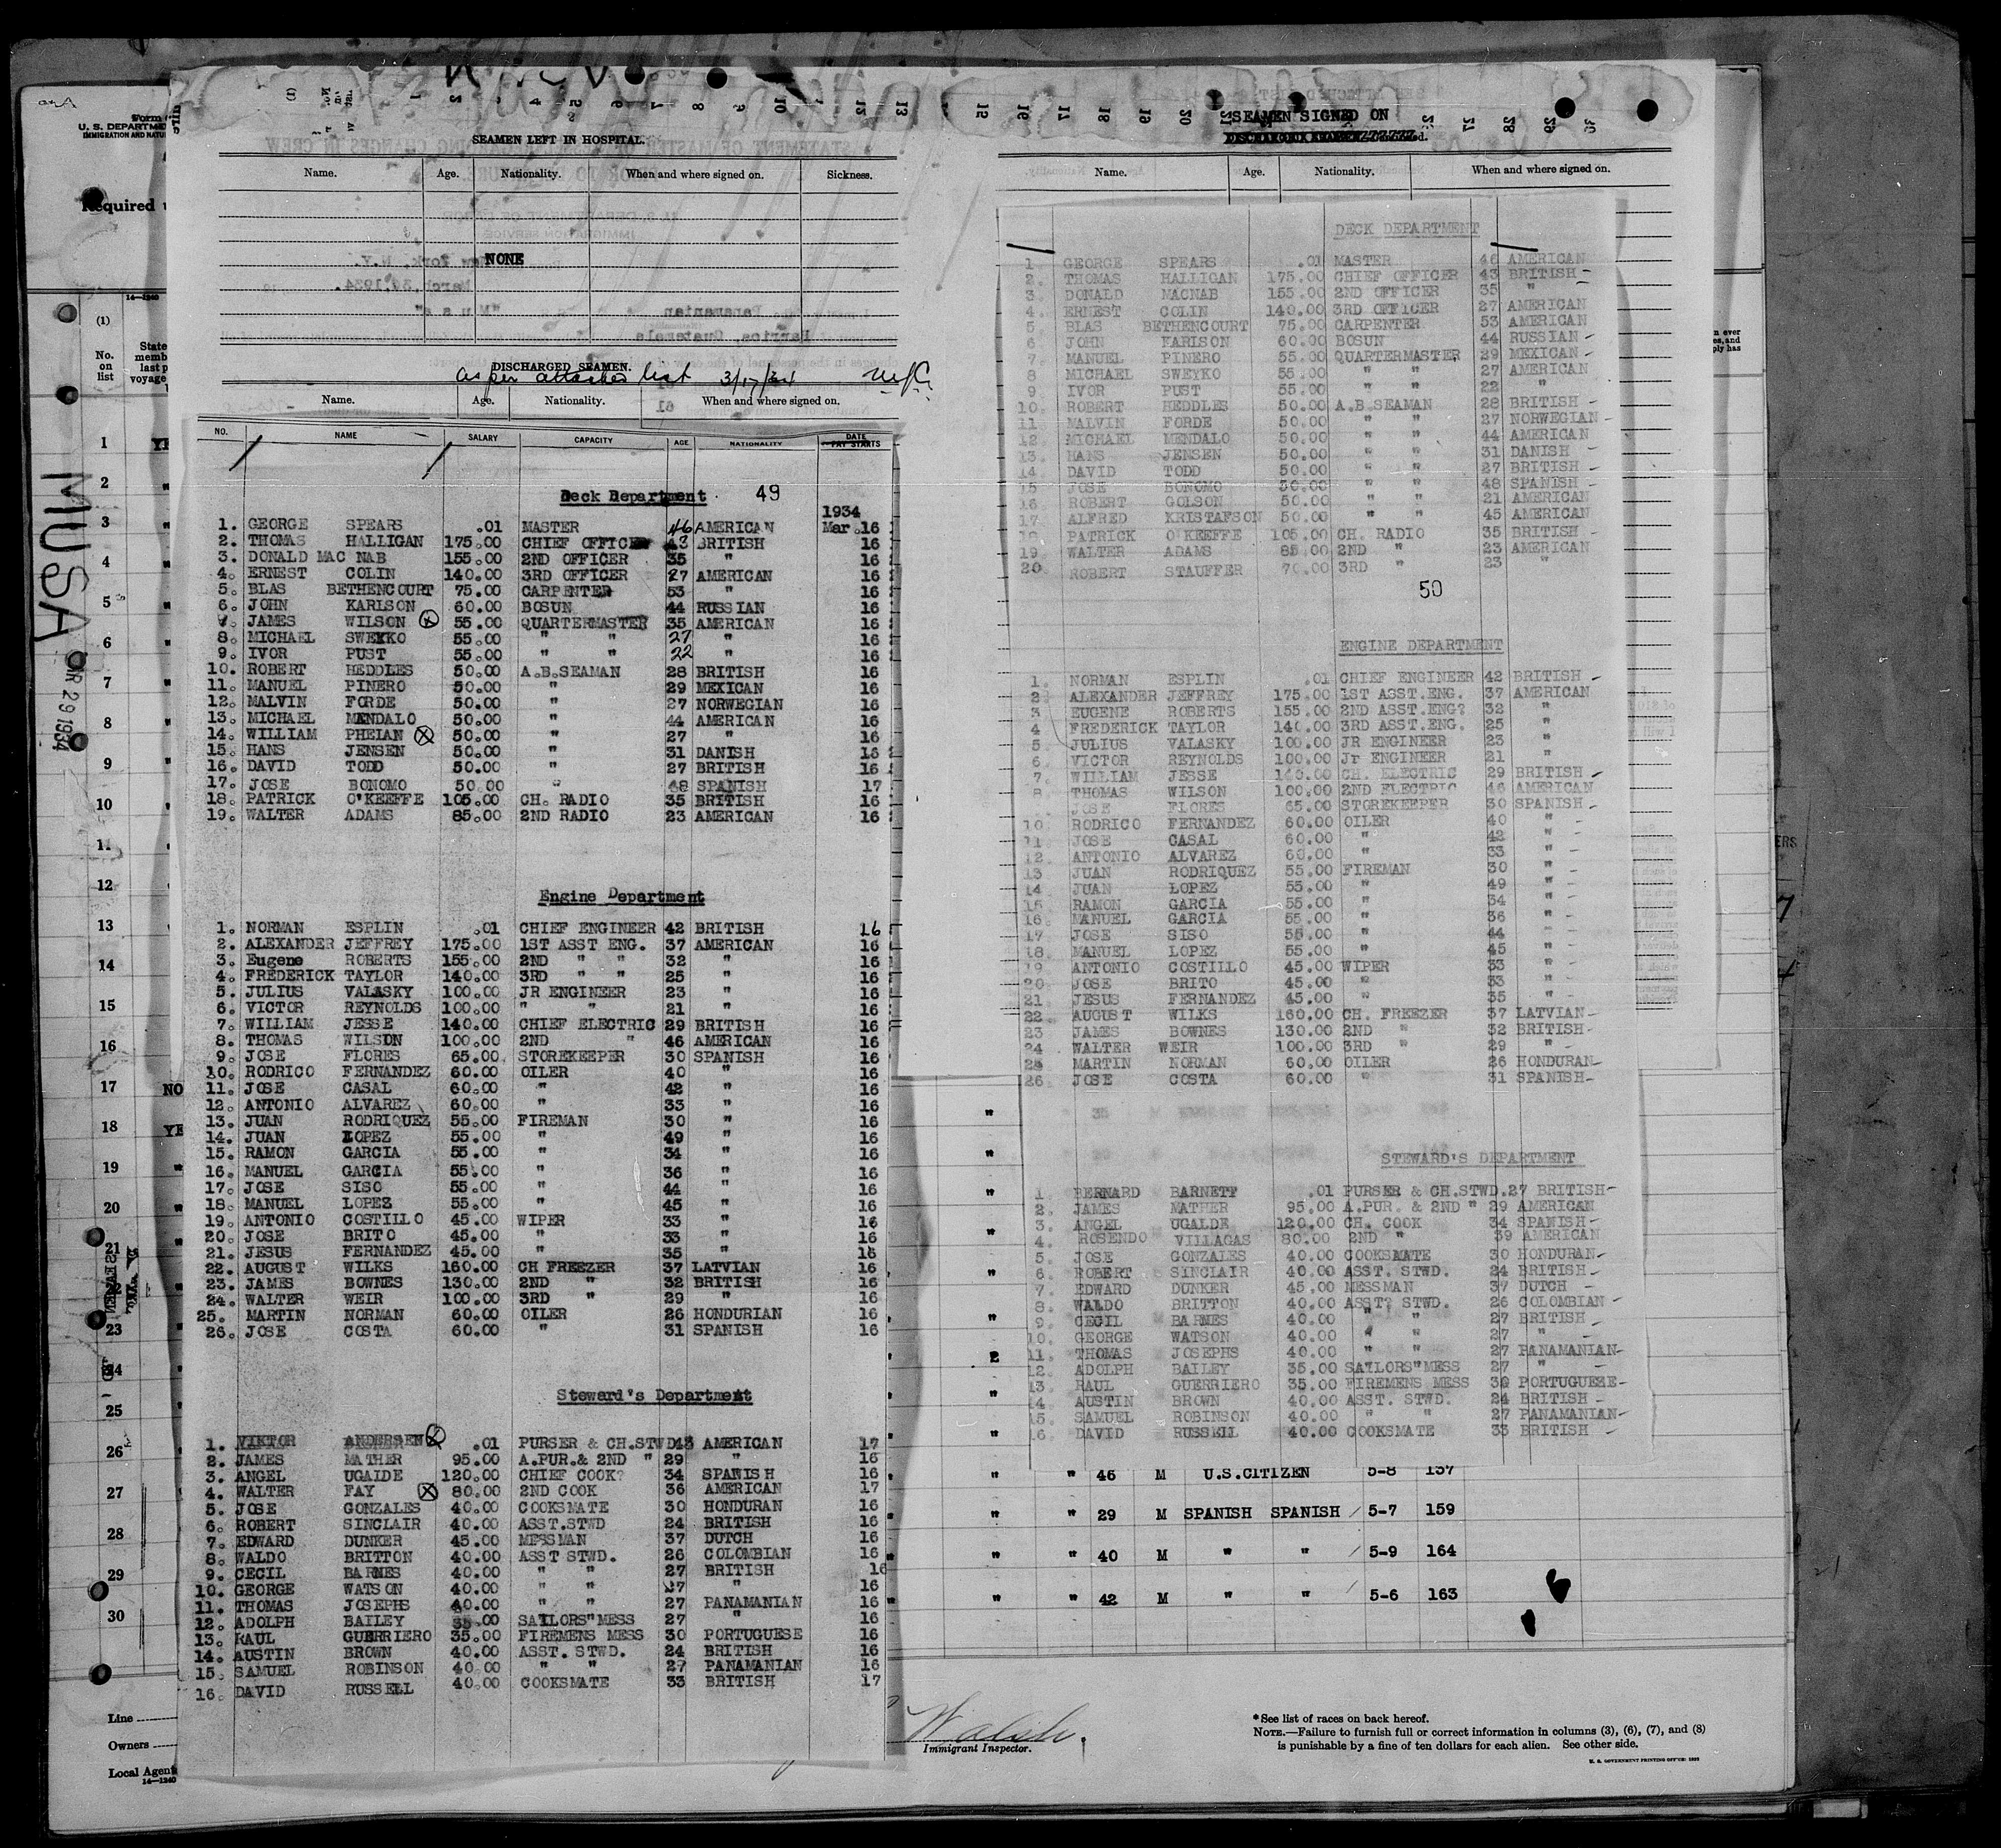 SEAMEN LEFT IN HOSPITAL.
Name. Age. Nationality. When and where signed on. Sickness.
NONE
DISCHARGED SEAMEN.
as per attached list 3/17/34
Name. Age. Nationality. When and where signed on.
NO. NAME SALARY CAPACITY AGE NATIONALITY DATE PAY STARTS
Deck Department 49
1934
1. GEORGE SPEARS .01 MASTER 46 AMERICAN Mar. 16
2. THOMAS HALLIGAN 175.00 CHIEF OFFICER 43 BRITISH 16
3. DONALD MAC NAB 155.00 2ND OFFICER 35 " 16
4. ERNEST COLIN 140.00 3RD OFFICER 27 AMERICAN 16
5. BLAS BETHENCOURT 75.00 CARPENTER 53 " 16
6. JOHN KARLSON 60.00 BOSUN 44 RUSSIAN 16
7. JAMES WILSON 55.00 QUARTERMASTER 35 AMERICAN 16
8. MICHAEL SWEYKO 55.00 " " 27 " 16
9. IVOR PUST 55.00 " " 22 " 16
10. ROBERT HEDDLES 50.00 A.B.SEAMAN 28 BRITISH 16
11. MANUEL PINERO 50.00 " 29 MEXICAN 16
12. MALVIN FORDE 50.00 " 27 NORWEGIAN 16
13. MICHAEL MENDALO 50.00 " 44 AMERICAN 16
14. WILLIAM PHELAN 50.00 " 27 " 16
15. HANS JENSEN 50.00 " 31 DANISH 16
16. DAVID TODD 50.00 " 27 BRITISH 16
17. JOSE BONOMO 50.00 " 48 SPANISH 17
18. PATRICK O'KEEFFE 105.00 CH. RADIO 35 BRITISH 16
19. WALTER ADAMS 85.00 2ND RADIO 23 AMERICAN 16
Engine Department
1. NORMAN ESPLIN .01 CHIEF ENGINEER 42 BRITISH 16
2. ALEXANDER JEFFREY 175.00 1ST ASST ENG. 37 AMERICAN 16
3. Eugene ROBERTS 155.00 2ND " " 32 " 16
4. FREDERICK TAYLOR 140.00 3RD " " 25 " 16
5. JULIUS VALASKY 100.00 JR ENGINEER 23 " 16
6. VICTOR REYNOLDS 100.00 " " 21 " 16
7. WILLIAM JESSE 140.00 CHIEF ELECTRIC 29 BRITISH 16
8. THOMAS WILSON 100.00 2ND " 46 AMERICAN 16
9. JOSE FLORES 65.00 STOREKEEPER 30 SPANISH 16
10. RODRICO FERNANDEZ 60.00 OILER 40 " 16
11. JOSE CASAL 60.00 " 42 " 16
12. ANTONIO ALVAREZ 60.00 " 33 " 16
13. JUAN RODRIQUEZ 55.00 FIREMAN 30 " 16
14. JUAN LOPEZ 55.00 " 49 " 16
15. RAMON GARCIA 55.00 " 34 " 16
16. MANUEL GARCIA 55.00 " 36 " 16
17. JOSE SISO 55.00 " 44 " 16
18. MANUEL LOPEZ 55.00 " 45 " 16
19. ANTONIO COSTILLO 45.00 WIPER 33 " 16
20. JOSE BRITO 45.00 " 33 " 16
21. JESUS FERNANDEZ 45.00 " 35 " 16
22. AUGUST WILKS 160.00 CH FREEZER 37 LATVIAN 16
23. JAMES BOWNES 130.00 2ND " 32 BRITISH 16
24. WALTER WEIR 100.00 3RD " 29 " 16
25. MARTIN NORMAN 60.00 OILER 26 HONDURIAN 16
26. JOSE COSTA 60.00 " 31 SPANISH 16
Steward's Department
1. VIKTOR ANDERSEN .01 PURSER & CH.STWD 43 AMERICAN 17
2. JAMES MATHER 95.00 A.PUR.& 2ND " 29 " 16
3. ANGEL UGALDE 120.00 CHIEF COOK? 34 SPANISH 16
4. WALTER FAY 80.00 2ND COOK 36 AMERICAN 17
5. JOSE GONZALES 40.00 COOKSMATE 30 HONDURAN 16
6. ROBERT SINCLAIR 40.00 ASST.STWD 24 BRITISH 16
7. EDWARD DUNKER 45.00 MESSMAN 37 DUTCH 16
8. WALDO BRITTON 40.00 ASST STWD. 26 COLOMBIAN 16
9. CECIL BARNES 40.00 " " 27 BRITISH 16
10. GEORGE WATSON 40.00 " " 27 " 16
11. THOMAS JOSEPHS 40.00 " " 27 PANAMANIAN 16
12. ADOLPH BAILEY 35.00 SAILORS" MESS 27 " 16
13. RAUL GUERRIERO 35.00 FIREMENS MESS 30 PORTUGUESE 16
14. AUSTIN BROWN 40.00 ASST. STWD. 24 BRITISH 16
15. SAMUEL ROBINSON 40.00 " " 27 PANAMANIAN 16
16. DAVID RUSSELL 40.00 COOKSMATE 33 BRITISH 17
SEAMEN SIGNED ON
Name. Age. Nationality. When and where signed on.
DECK DEPARTMENT
1. GEORGE SPEARS .01 MASTER 46 AMERICAN
2. THOMAS HALLIGAN 175.00 CHIEF OFFICER 43 BRITISH
3. DONALD MACNAB 155.00 2ND OFFICER 35 "
4. ERNEST COLIN 140.00 3RD OFFICER 27 AMERICAN
5. BLAS BETHENCOURT 75.00 CARPENTER 53 AMERICAN
6 JOHN KARLSON 60.00 BOSUN 44 RUSSIAN
7 MANUEL PINERO 55.00 QUARTERMASTER 29 MEXICAN
8 MICHAEL SWEYKO 55.00 " " 27 AMERICAN
9 IVOR PUST 55.00 " " 22 "
10. ROBERT HEDDLES 50.00 A.B.SEAMAN 28 BRITISH
11 MALVIN FORDE 50.00 " " 27 NORWEGIAN
12. MICHAEL MENDALO 50.00 " " 44 AMERICAN
13. HANS JENSEN 50.00 " " 31 DANISH
14 DAVID TODD 50.00 " " 27 BRITISH
15 JOSE BONOMO 50.00 " " 48 SPANISH
16. ROBERT GOLSON 50.00 " " 21 AMERICAN
17 ALFRED KRISTAFSON 50.00 " " 45 AMERICAN
18 PATRICK O'KEEFFE 105.00 CH. RADIO 35 BRITISH
19. WALTER ADAMS 85.00 2ND " 23 AMERICAN
20. ROBERT STAUFFER 70.00 3RD " 23 "
50
ENGINE DEPARTMENT
1. NORMAN ESPLIN .01 CHIEF ENGINEER 42 BRITISH
2 ALEXANDER JEFFREY 175.00 1ST ASST.ENG. 37 AMERICAN
3 EUGENE ROBERTS 155.00 2ND ASST.ENG? 32 "
4 FREDERICK TAYLOR 140.00 3RD ASST.ENG. 25 "
5. JULIUS VALASKY 100.00 JR ENGINEER 23 "
6. VICTOR REYNOLDS 100.00 Jr ENGINEER 21 "
7. WILLIAM JESSE 140.00 CH. ELECTRIC 29 BRITISH
8. THOMAS WILSON 100.00 2ND ELECTRIC 46 AMERICAN
JOSE FLORES 65.00 STOREKEEPER 30 SPANISH
10. RODRICO FERNANDEZ 60.00 OILER 40 "
11. JOSE CASAL 60.00 " 42 "
12. ANTONIO ALVAREZ 60.00 " 33 "
13 JUAN RODRIQUEZ 55.00 FIREMAN 30 "
14 JUAN LOPEZ 55.00 " 49 "
15 RAMON GARCIA 55.00 " 34 "
16. MANUEL GARCIA 55.00 " 36 "
17 JOSE SISO 55.00 " 44 "
18. MANUEL LOPEZ 55.00 " 45 "
19 ANTONIO COSTILLO 45.00 WIPER 33 "
20. JOSE BRITO 45.00 " 33 "
21. JESUS FERNANDEZ 45.00 " 35 "
22. AUGUST WILKS 160.00 CH. FREEZER 37 LATVIAN
23 JAMES BOWNES 130.00 2ND " 32 BRITISH
24 WALTER WEIR 100.00 3RD " 29 "
25 MARTIN NORMAN 60.00 OILER 26 HONDURAN
26. JOSE COSTA 60.00 " 31 SPANISH
STEWARD'S DEPARTMENT
1. BERNARD BARNETT .01 PURSER & CH.STWD. 27 BRITISH
2. JAMES MATHER 95.00 A.PUR. & 2ND " 29 AMERICAN
3. ANGEL UGALDE 120.00 CH. COOK 34 SPANISH
4. ROSENDO VILLAGAS 80.00 2ND " 39 AMERICAN
5. JOSE GONZALES 40.00 COOKSMATE 30 HONDURAN
6. ROBERT SINCLAIR 40.00 ASST. STWD. 24 BRITISH
7. EDWARD DUNKER 45.00 MESSMAN 37 DUTCH
8. WALDO BRITTON 40.00 ASST? STWD. 26 COLOMBIAN
9. CECIL BARNES 40.00 " " 27 BRITISH
10. GEORGE WATSON 40.00 " " 27 "
11. THOMAS JOSEPHS 40.00 " " 27 PANAMANIAN
12. ADOLPH BAILEY 35.00 SAILORS" MESS 27 "
13. RAUL GUERRIERO 35.00 FIREMENS MESS 30 PORTUGUESE
14 AUSTIN BROWN 40.00 ASST. STWD. 24 BRITISH
15. SAMUEL ROBINSON 40.00 " " 27 PANAMANIAN
16. DAVID RUSSELL 40.00 COOKSMATE 33 BRITISH
" " 46 M U.S.CITIZEN 5-8 157
" " 29 M SPANISH SPANISH 5-7 159
" " 40 M " " 5-9 164
" " 42 M " " 5-6 163
Walsh.
Immigrant Inspector.
*See list of races on back hereof.
NOTE.—Failure to furnish full or correct information in columns (3), (6), (7), and (8)
is punishable by a fine of ten dollars for each alien. See other side.
U. S. GOVERNMENT PRINTING OFFICE: 1932
U. S. DEPARTM
IMMIGRATION AND NATU
Required
14—1240
(1)
No. on list
State
memb
last p
voyage
1
2
3
4
5
6
7
8
9
10
11
12
13
14
15
16
17 NO
18 YE
19
20
21
23
24
25
26
27
28
29
30
MUSA
MAR 29 1934
Line
Owners
Local Agent
14—1240